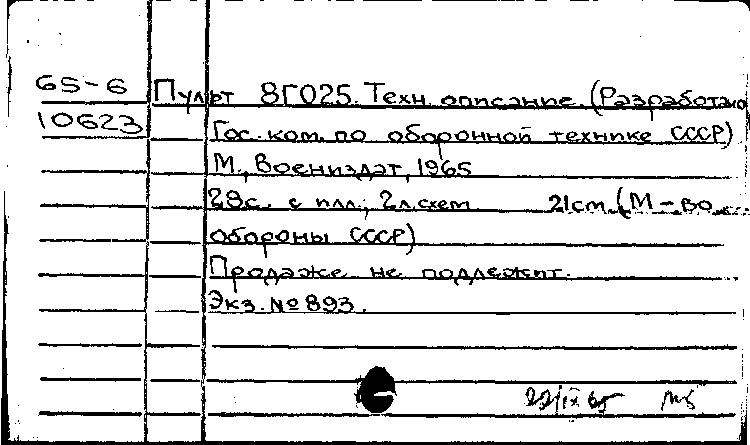 65-6
10623
Пульт 8Г025. Техн. описание. (Разработано
Гос. ком. по оборонной технике СССР)
М., Воениздат, 1965
28с. с илл.; 2л.схем 21см. (М-во
обороны СССР)
Продаже не подлежит.
Экз. №893.
22/IX 65